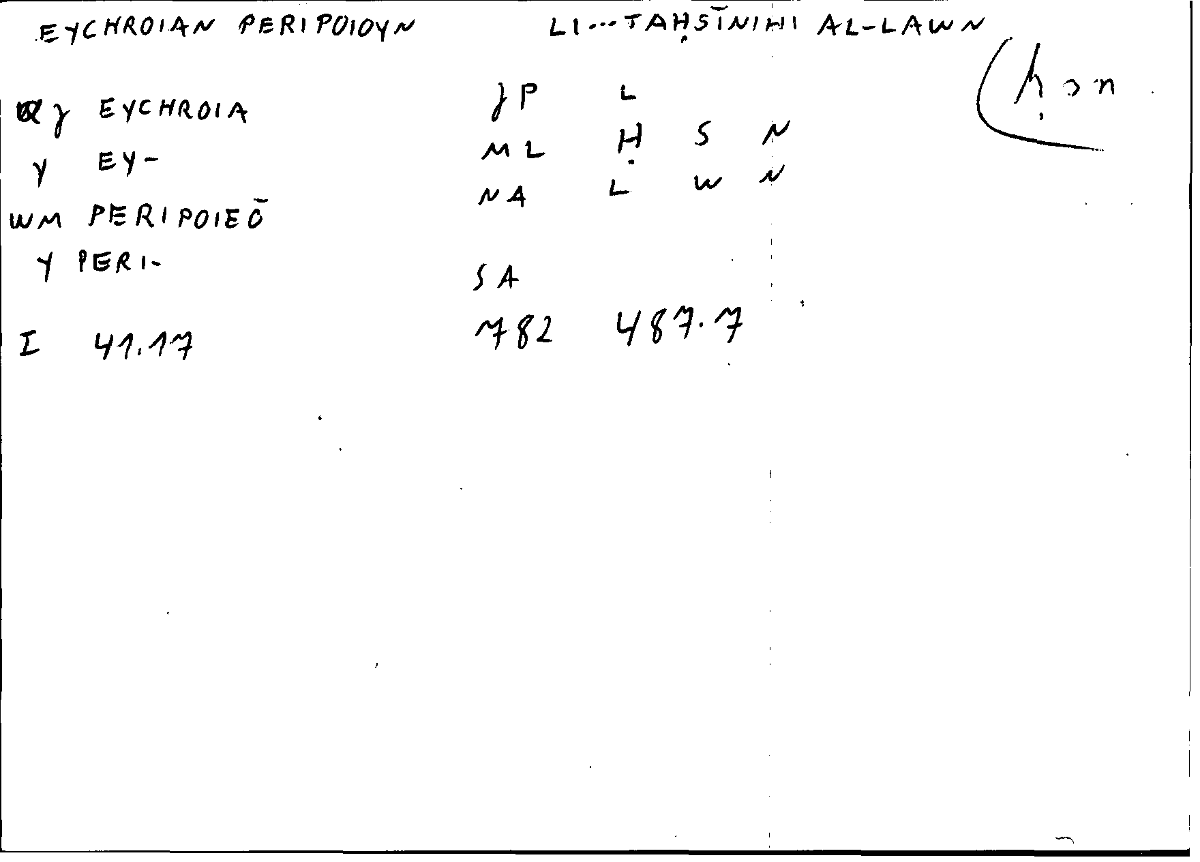 EYCHROIAN PERIPOIOYN LI...TAḤSĪNIHI AL-LAWN
ḥsn
EYCHROIA JP L
Y EY- ML Ḥ S N
WM PERIPOIEŌ NA L W N
Y PERI- SA
I 41.17 782 487.7